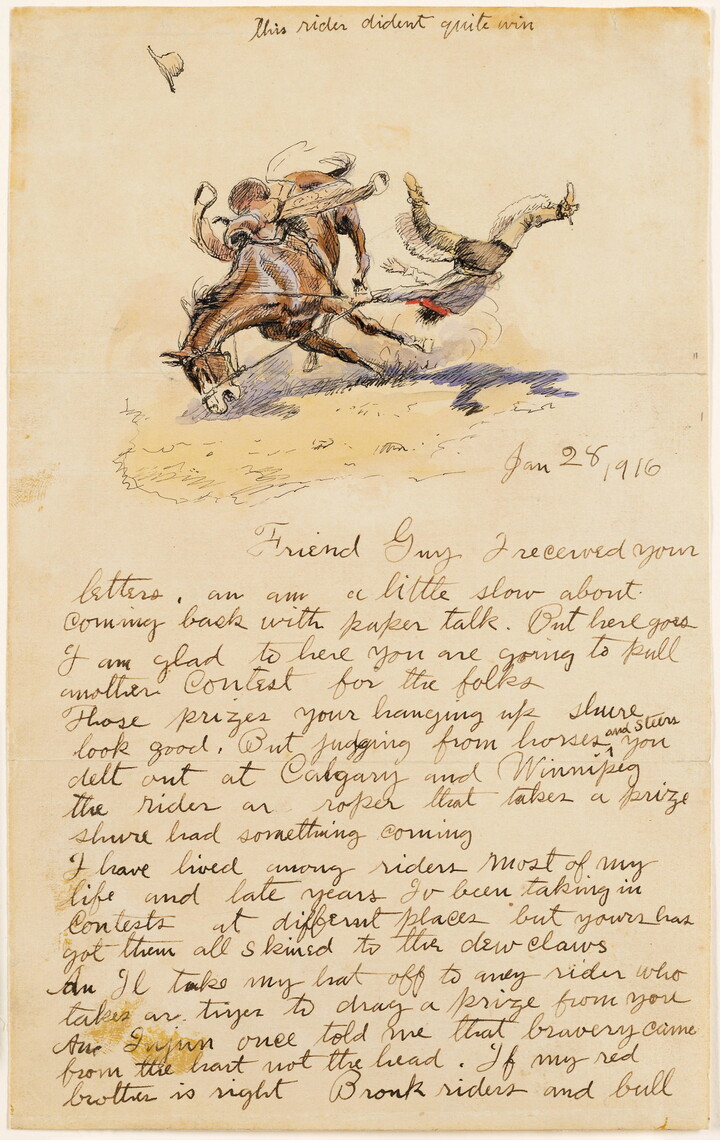 This rider dident quite win
Jan 28, 1916
Friend Guy I received your
letters. an am a little slow about
coming back with paper talk. But here goes
I am glad to here you are going to pull
another Contest for the folks
Those prizes your hanging up shure
look good. But judging from horses and Steers you
delt out at Calgary and Winnipeg
the rider ar roper that takes a prize
shure had something coming
I have lived among riders most of my
life and late years Iv been taking in
Contests at different places but yours has
got them all skined to the dew claws
An Il take my hat off to aney rider who
takes ar tryes to drag a prize from you
An Injun once told me that bravery came
from the hart not the head. If my red
brother is right Bronk riders and bull